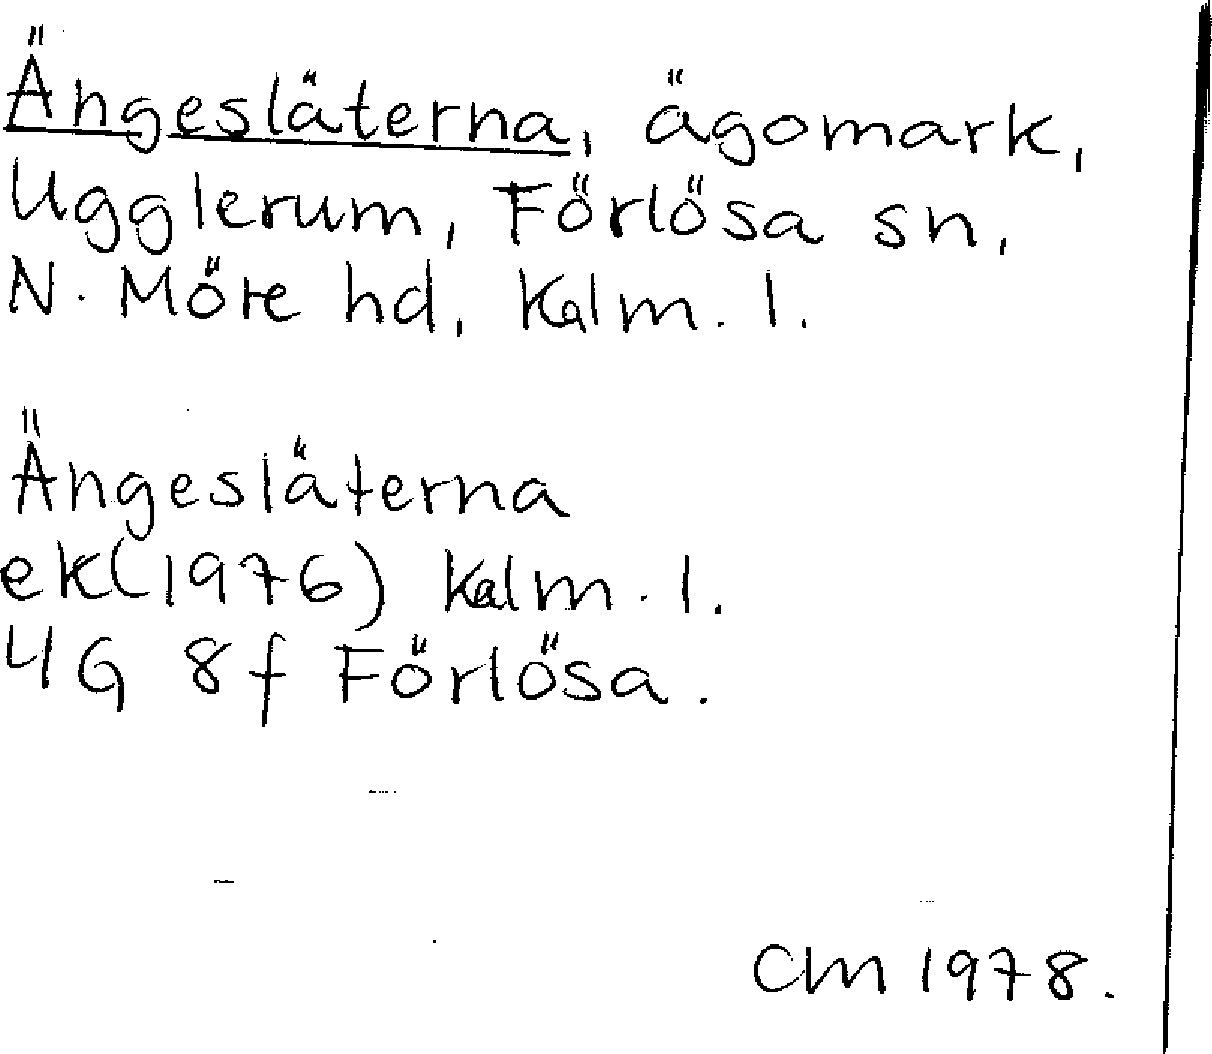 Ängesläterna, ägomark,
Ugglerum, Förlösa sn,
N. Möre hd, Kalm. l.
Ängesläterna
ek(1976) Kalm. l.
4G 8f Förlösa.
CM 1978.